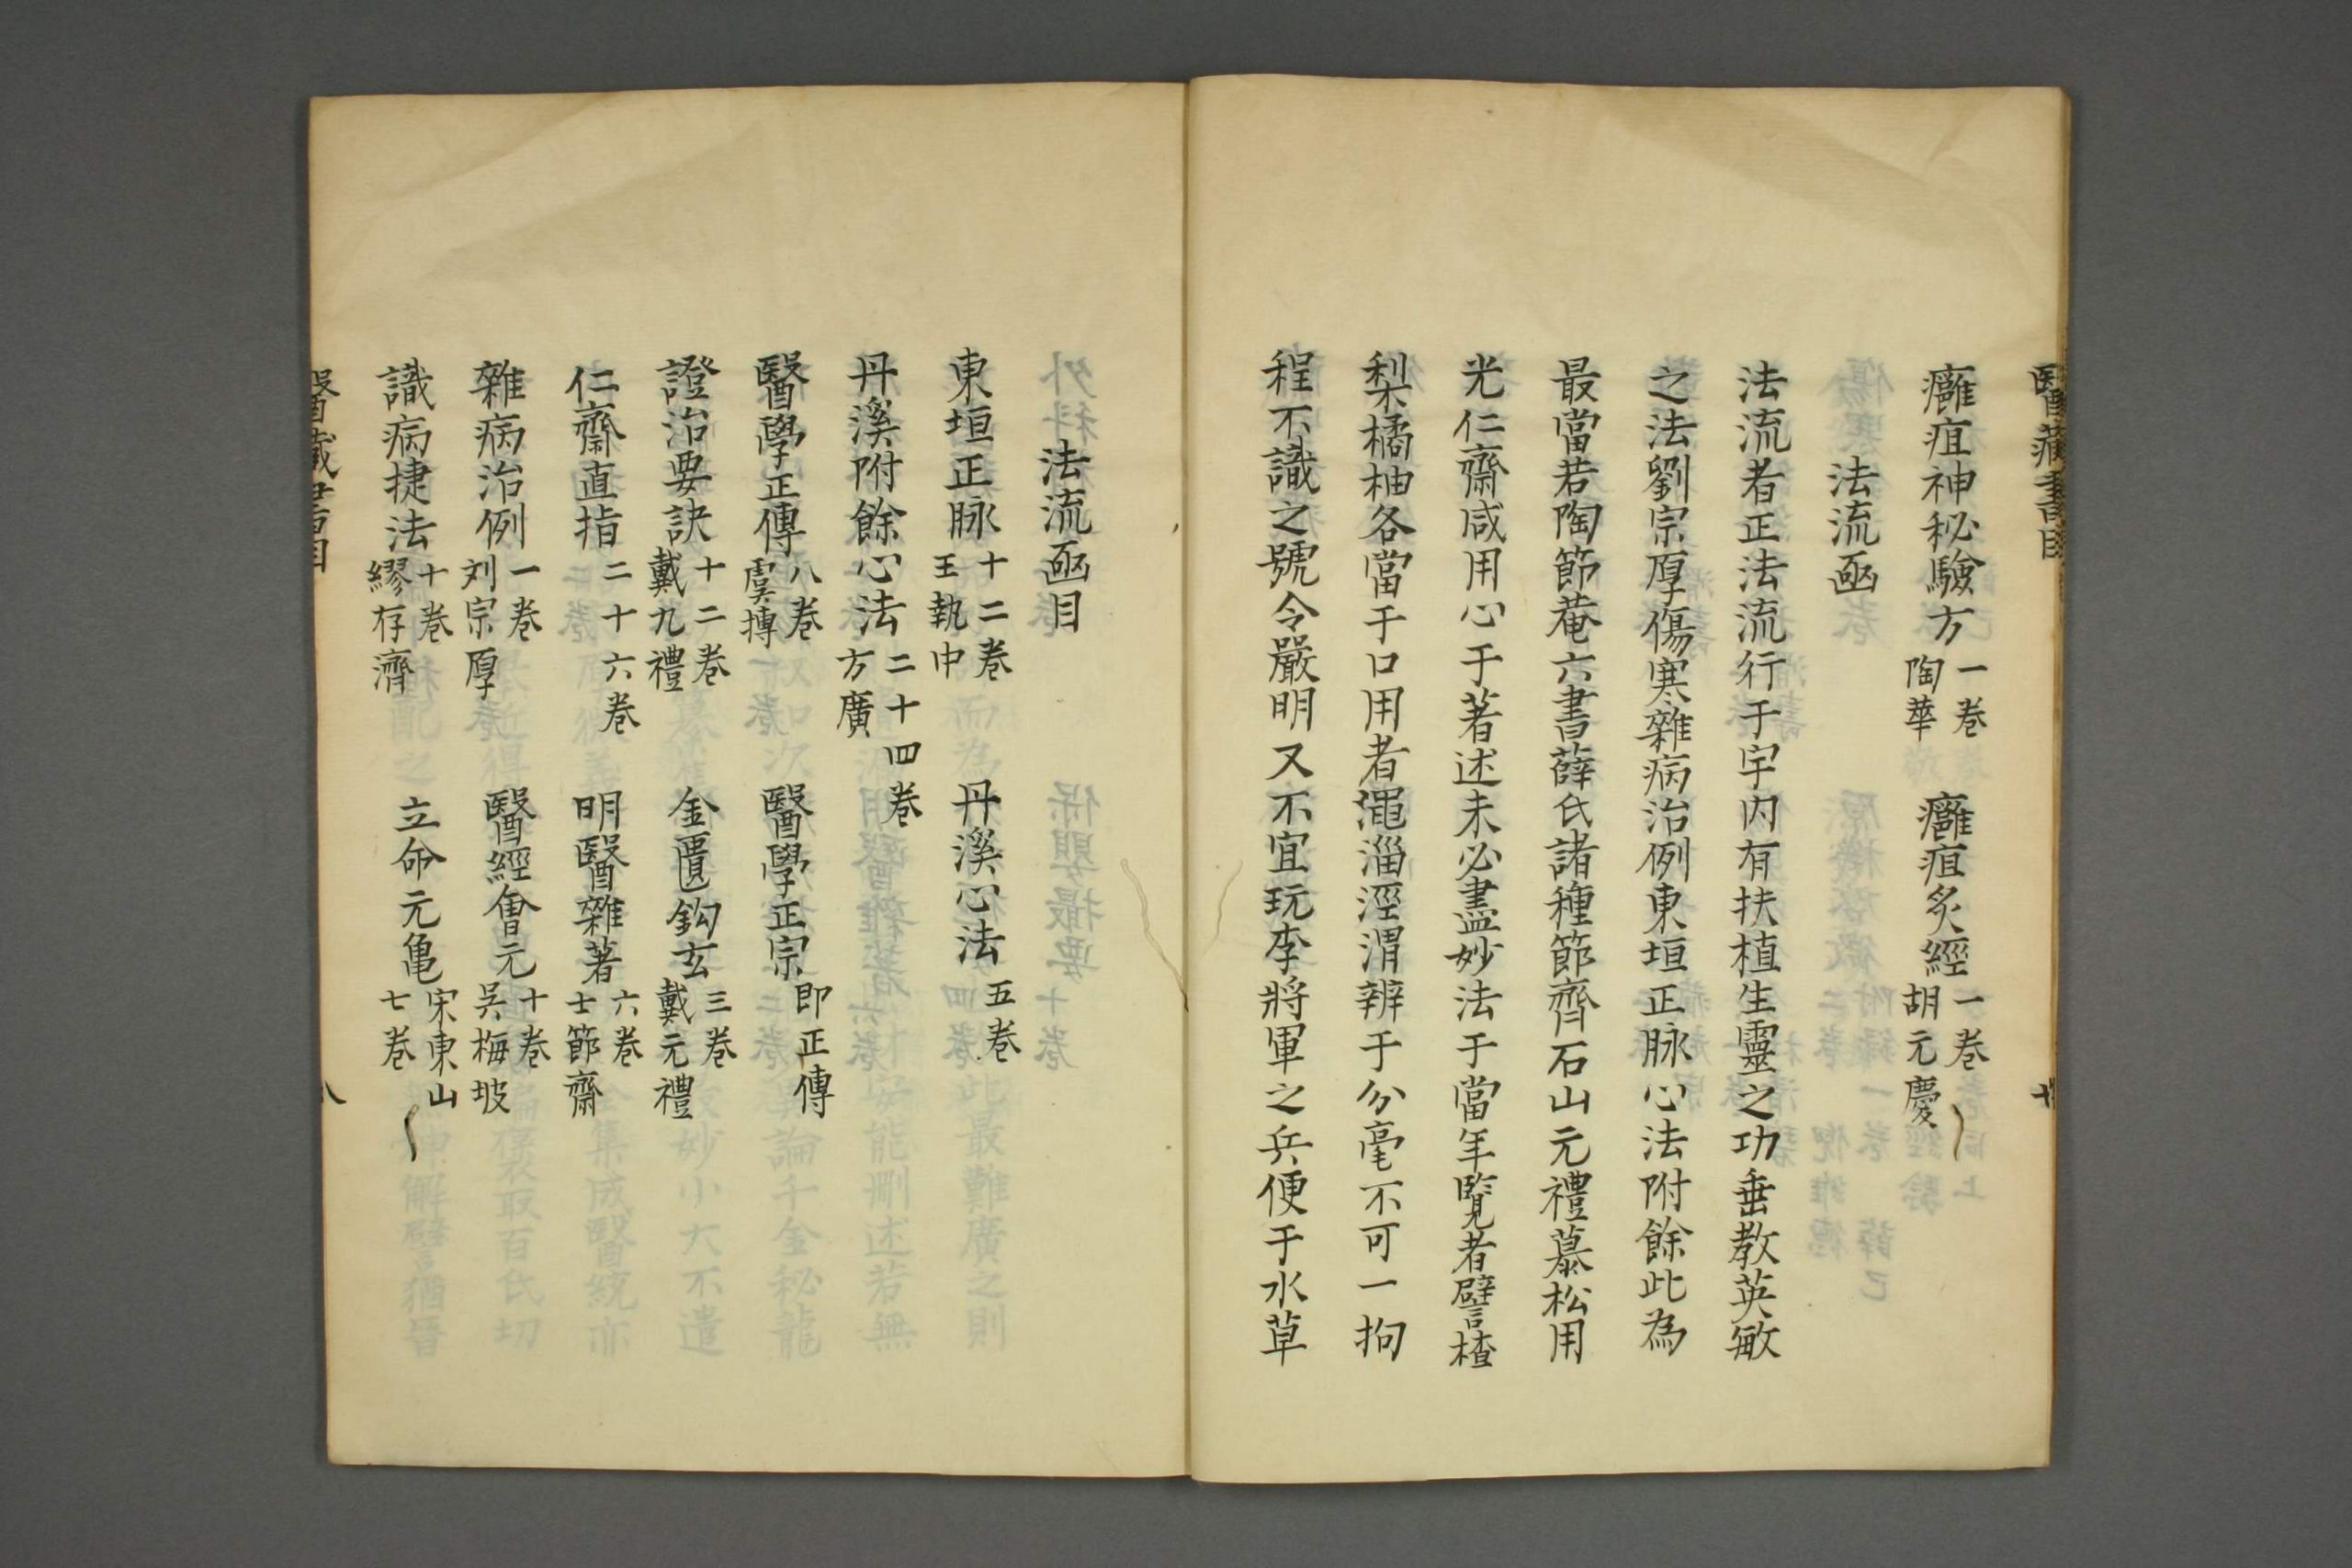 醫藏書目
癰疽神秘驗方 一卷 陶華 癰疽灸經 一卷 胡元慶
法流函
法流者正法流行于宇内有扶植生靈之功垂教英敏
之法劉宗厚傷寒雜病治例東垣正脉心法附餘此為
最當若陶節菴六書薛氏諸種節齊石山元禮慕松用
光仁齋咸用心于著述未必盡妙法于當年覧者譬楂
梨橘柚各當于口用者澠淄涇渭辨于分毫不可一拘
程不識之號令嚴明又不宜玩李將軍之兵便于水草
法流函目
東垣正脉 十二卷 王執中 丹溪心法 五卷
丹溪附餘心法 二十四卷 方廣
醫學正傳 八卷 虞摶 醫學正宗 即正傳
證治要訣 十二卷 戴九禮 金匱鈎玄 三卷 戴元禮
仁齋直指 二十六卷 明醫雜著 六卷 士節齋
雜病治例 一卷 刘宗厚 醫經會元 十卷 吳梅坡
識病捷法 十卷 繆存濟 立命元亀 宋東山 七卷
醫藏書目 八